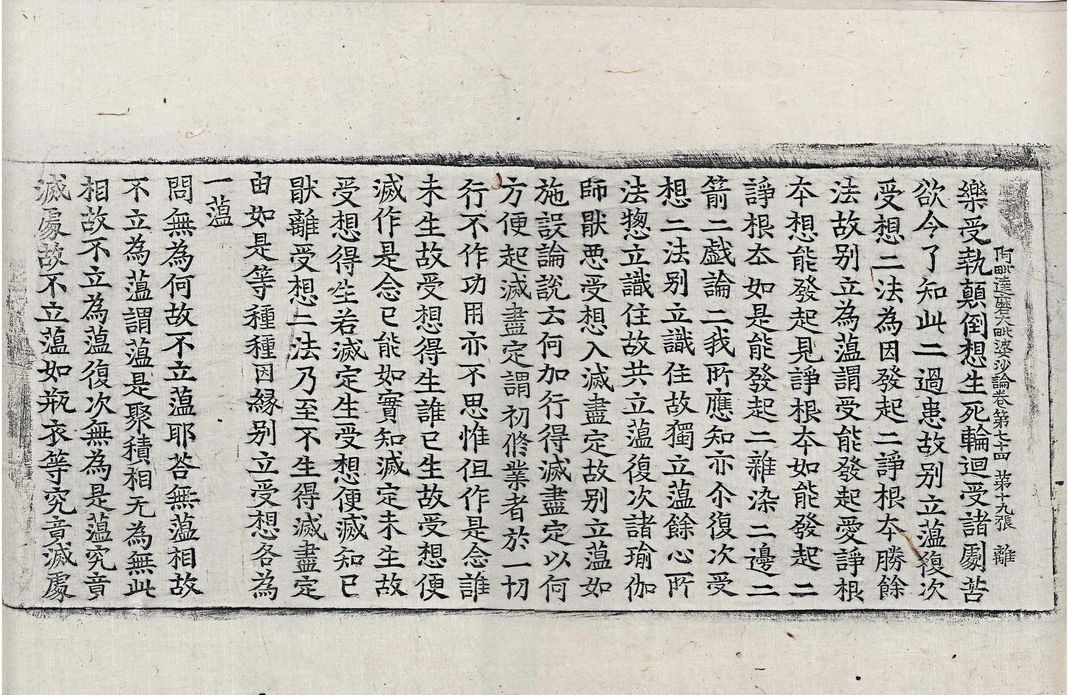 阿毗達磨大毗婆沙論卷第七十四 第十九張 離
樂受執顛倒想生死輪迴受諸劇苦
欲令了知此二過患故別立蘊復次
受想二法為因發起二諍根本勝餘
法故別立為蘊謂受能發起愛諍根
本想能發起見諍根本如能發起二
諍根本如是能發起二雜染二邊二
箭二戲論二我所應知亦尒復次受
想二法別立識住故獨立蘊餘心所
法揔立識住故共立蘊復次諸瑜伽
師猒惡受想入滅盡定故別立蘊如
施設論說云何加行得滅盡定以何
方便起滅盡定謂初修業者於一切
行不作功用亦不思惟但作是念誰
未生故受想得生誰已生故受想便
滅作是念已能如實知滅定未生故
受想得生若滅定生受想便滅知已
猒離受想二法乃至不生得滅盡定
由如是等種種因緣別立受想各為
一蘊
問無為何故不立蘊耶荅無蘊相故
不立為蘊謂蘊是聚積相无為無此
相故不立為蘊復次無為是蘊究竟
滅處故不立蘊如瓶衣等究竟滅處